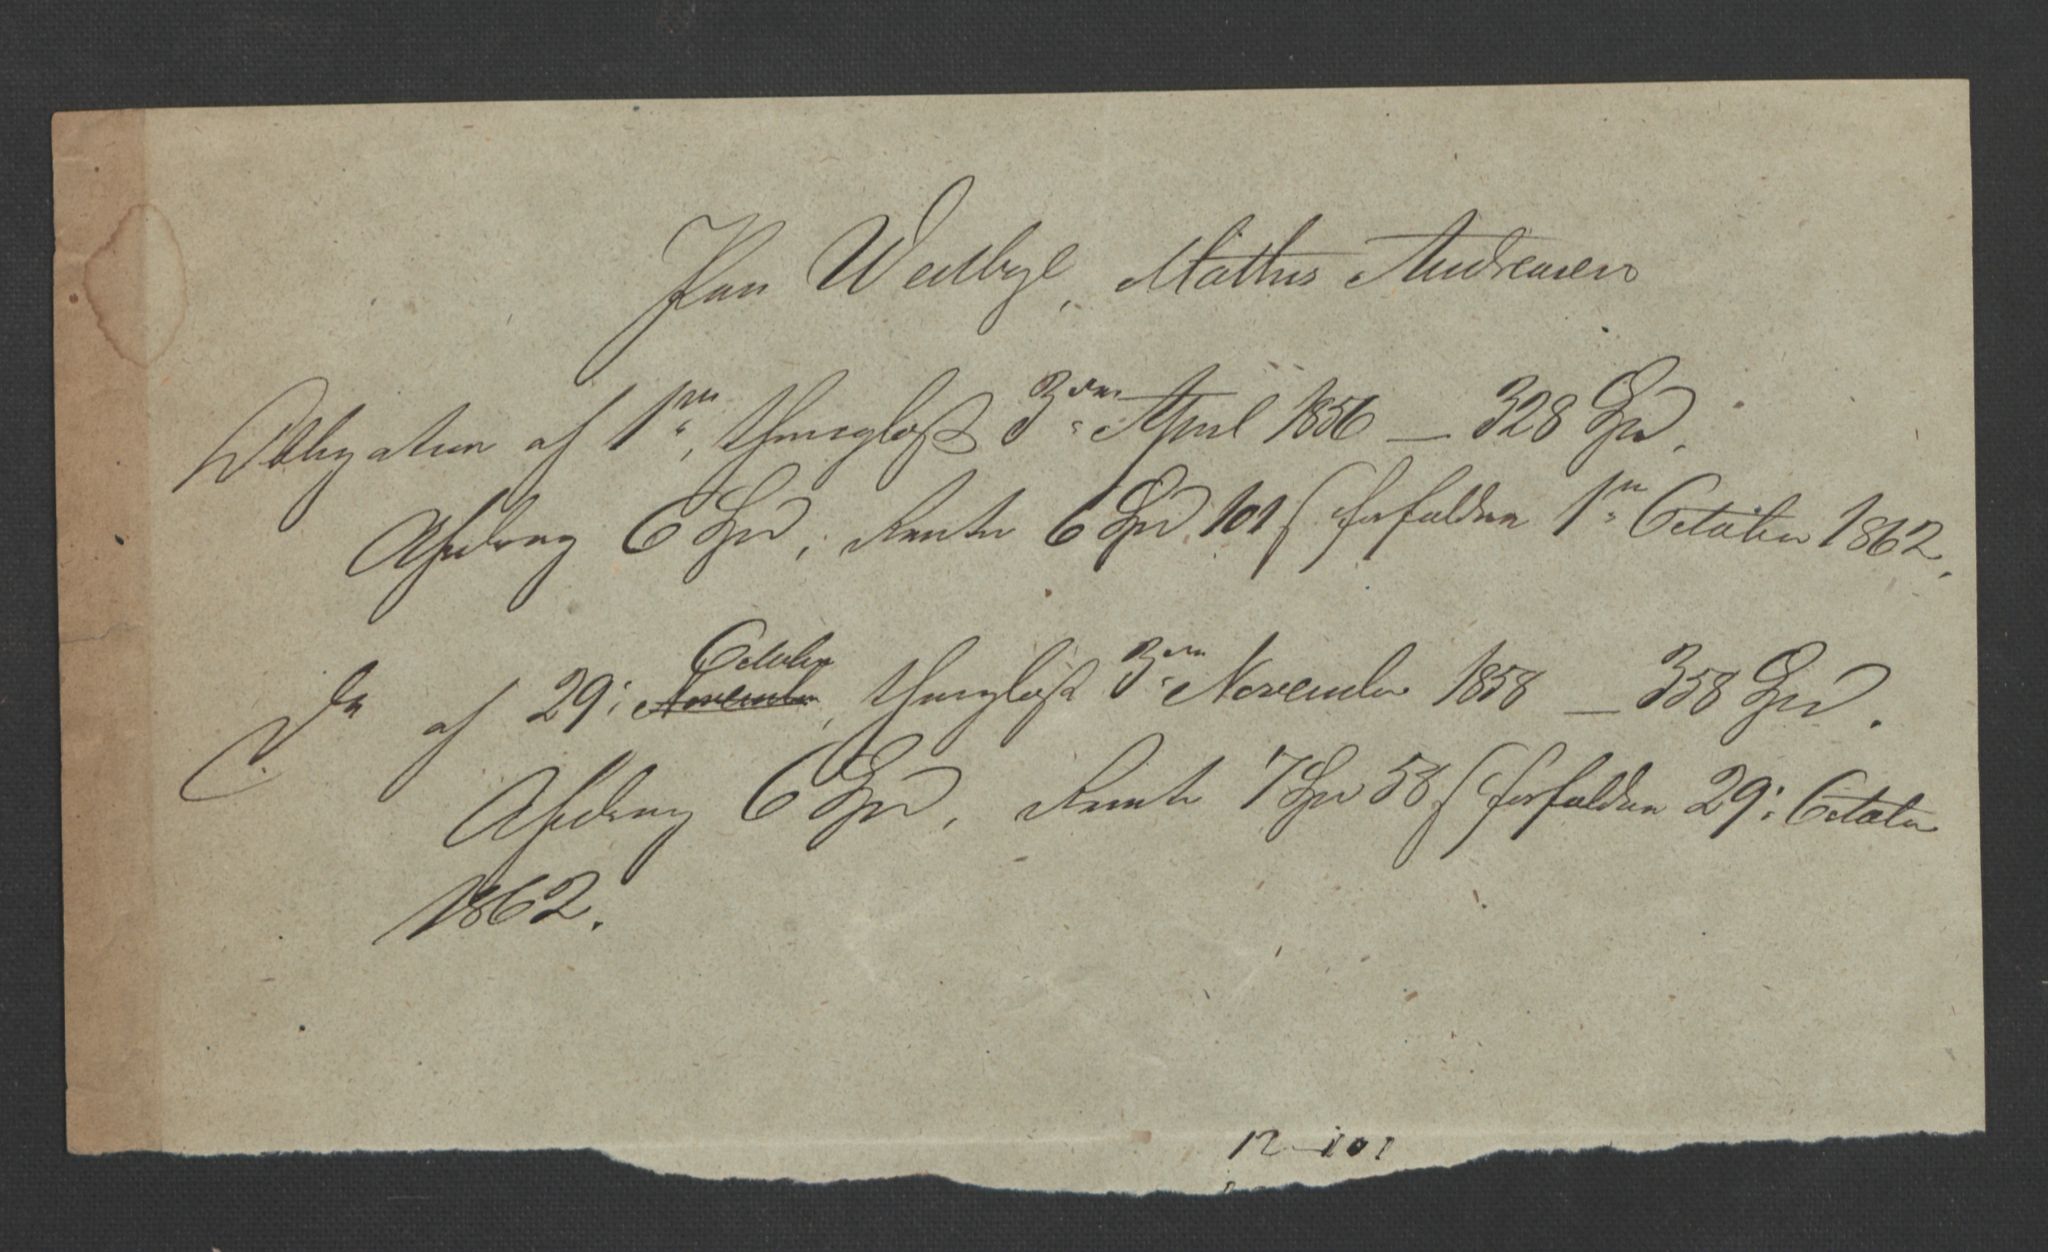 Paa Wedbye, Mathis Andreasen
Obligation af 1ste, thinglæst 3die April 1856 — 328 Spd.
Afdrag 6 Spd, Rente 6 Spd 101 ſ forfalden 1ste October 1862.
Do af 29: October November, thinglæst 3die November 1858 — 358 Spd.
Afdrag 6 Spd, Rente 7 Spd 58 ſ forfalden 29: October
1862.
12-101